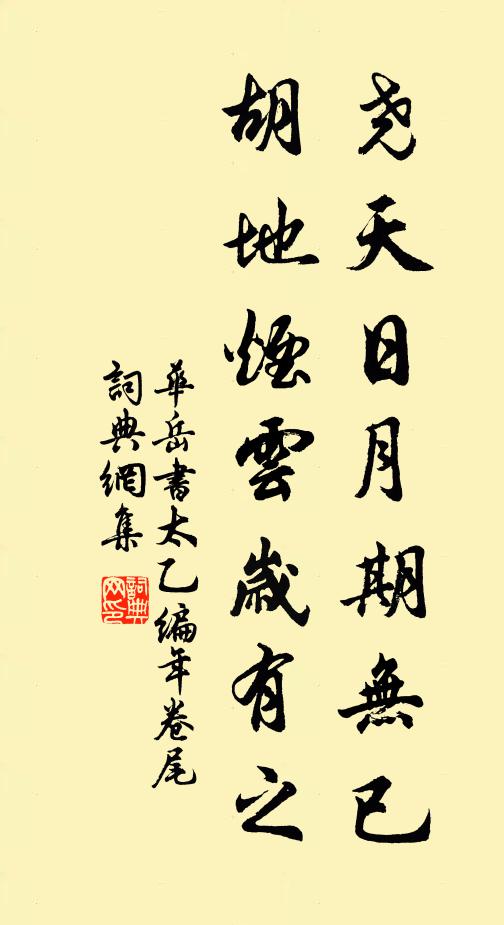 尧天日月期無已
胡地煙雲歲有之
華岳書太乙編年卷尾
詞典網集
詞典網印